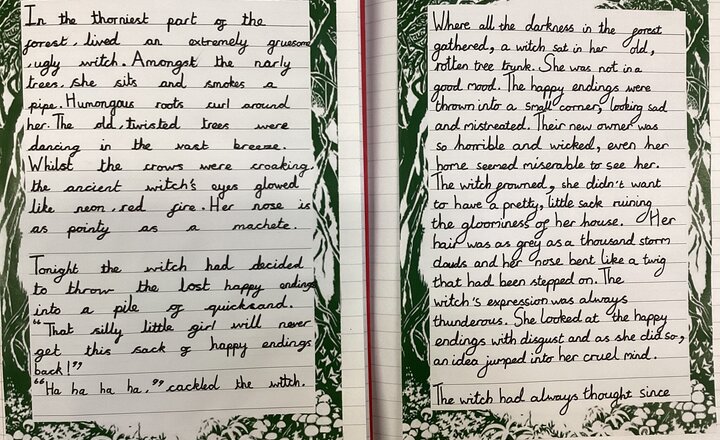 In the thorniest part of the
forest, lived an extremely gruesome
, ugly witch. Amongst the narly
trees, she sits and smokes a
pipe. Humongous roots curl around
her. The old, twisted trees were
dancing in the vast breeze.
Whilst the crows were croaking,
the ancient witch's eyes glowed
like neon, red fire. Her nose is
as pointy as a machete.
Tonight the witch had decided
to throw the lost happy endings
into a pile of quicksand.
"That silly little girl will never
get this sack of happy endings
back!"
"Ha ha ha ha," cackled the witch.
Where all the darkness in the forest
gathered, a witch sat in her old,
rotten tree trunk. She was not in a
good mood. The happy endings were
thrown into a small corner, looking sad
and mistreated. Their new owner was
so horrible and wicked, even her
home seemed miserable to see her.
The witch frowned, she didn't want
to have a pretty, little sack ruining
the gloominess of her house. Her
hair was as grey as a thousand storm
clouds and her nose bent like a twig
that had been stepped on. The
witch's expression was always
thunderous. She looked at the happy
endings with disgust and as she did so,
an idea jumped into her cruel mind.
The witch had always thought since